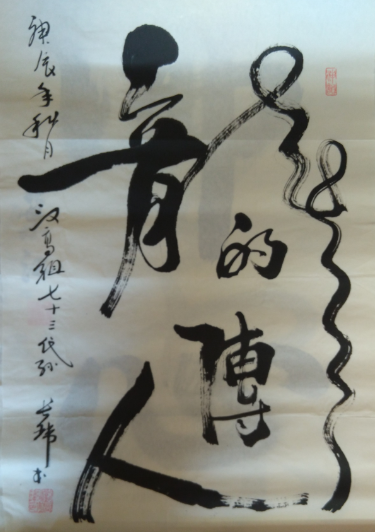 龍
的傳人
庚辰年秋月 汉高祖七十三代孙